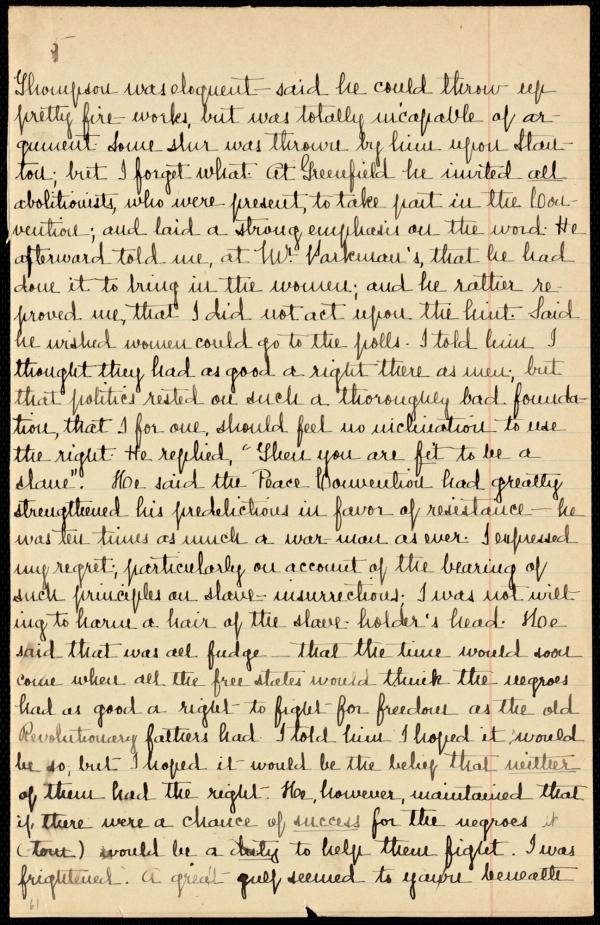 5
Thompson was eloquent – said he could throw up
pretty fire-works, but was totally incapable of ar-
gument. Some slur was thrown by him upon Stan-
ton; but I forget what. At Greenfield he invited all
abolitionists, who were present, to take part in the Con-
vention; and laid a strong emphasis on the word. He
afterward told me, at Mr. Parkman's, that he had
done it to bring in the women; and he rather re-
proved me, that I did not act upon the hint. Said
he wished women could go to the polls. I told him I
thought they had as good a right there as men; but
that politics rested on such a thoroughly bad founda-
tion, that I for one, should feel no inclination to use
the right. He replied, "Then you are fit to be a
slave". He said the Peace Convention had greatly
strengthened his predelictions in favor of resistance – he
was ten times as much a war-man as ever. I expressed
my regret; particularly on account of the bearing of
such principles on slave-insurrections; I was not will-
ing to harm a hair of the slave-holder's head. He
said that was all fudge – that the time would soon
come when all the free states would think the negroes
had as good a right to fight for freedom as the old
Revolutionary fathers had. I told him I hoped it would
be so, but I hoped it would be the belief that neither
of them had the right. He, however, maintained that
if there were a chance of success for the negroes it
(torn) would be a duty to help them fight. I was
frightened. A great gulf seemed to yawn beneath
61